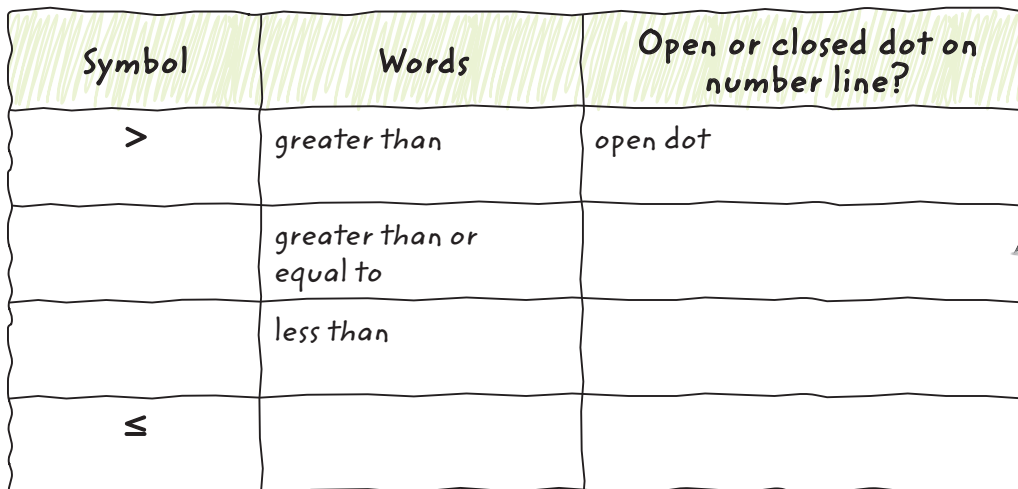 Symbol
Words
Open or closed dot on
number line?
>
greater than
open dot
greater than or
equal to
less than
≤